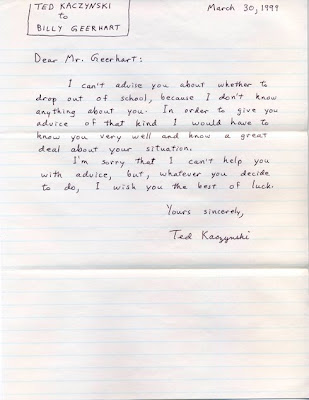 TED KACZYNSKI
to
BILLY GEERHART
March 30, 1999
Dear Mr. Geerhart:
I can't advise you about whether to
drop out of school, because I don't know
anything about you. In order to give you
advice of that kind I would have to
know you very well and know a great
deal about your situation.
I'm sorry that I can't help you
with advice, but, whatever you decide
to do, I wish you the best of luck.
Yours sincerely,
Ted Kaczynski